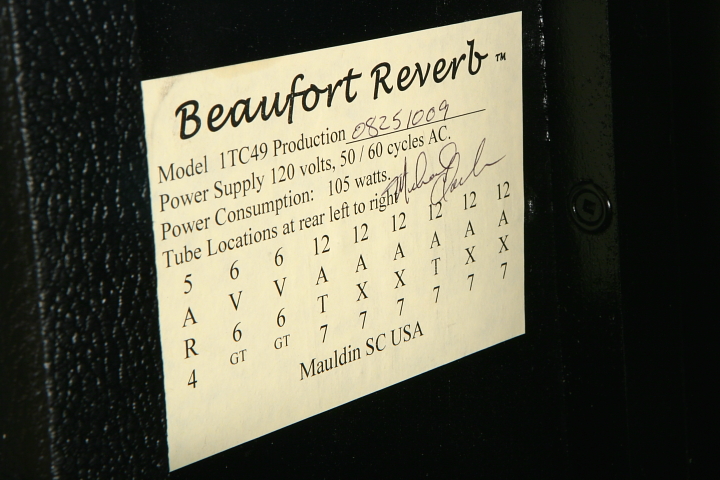 Beaufort Reverb ™
Model 1TC49 Production 08251009
Power Supply 120 volts, 50 / 60 cycles AC.
Power Consumption: 105 watts.
Tube Locations at rear left to right
5 6 6 12 12 12 12 12 12
A V V A A A A A A
R 6 6 T X X T X X
4 GT GT 7 7 7 7 7 7
Mauldin SC USA